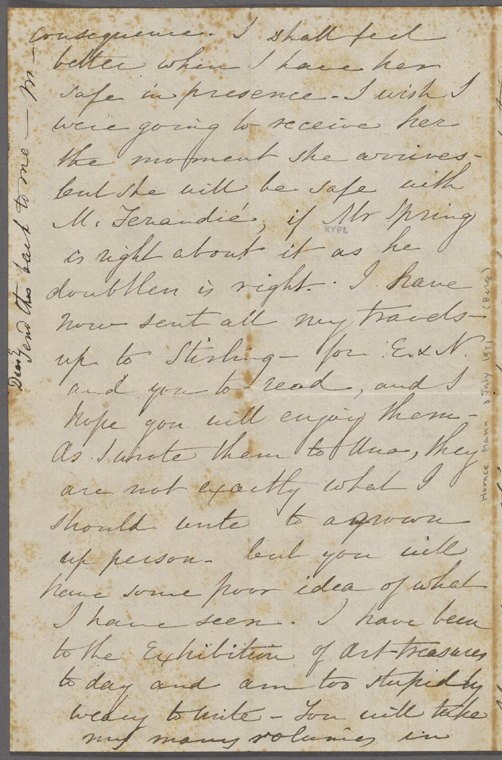 consequence. I shall feel
better when I have her
safe in presence - I wish I
were going to receive her
the moment she arrives -
but she will be safe with
M. Ferandié, if Mr Spring
NYPL
is right about it as he
doubtless is right. I have
now sent all my travels
up to Stirling - for E. & N.
and you to read, and I
hope you will enjoy them -
As I wrote them to Una, they
are not exactly what I
should write to a grown
up person - but you will
have some poor idea of what
I have seen. I have been
to the Exhibition of Art-treasures
to day and am too stupidly
weary to write - You will take
my many volumes in
Send this back to me -
Horace Mann July (Berg)